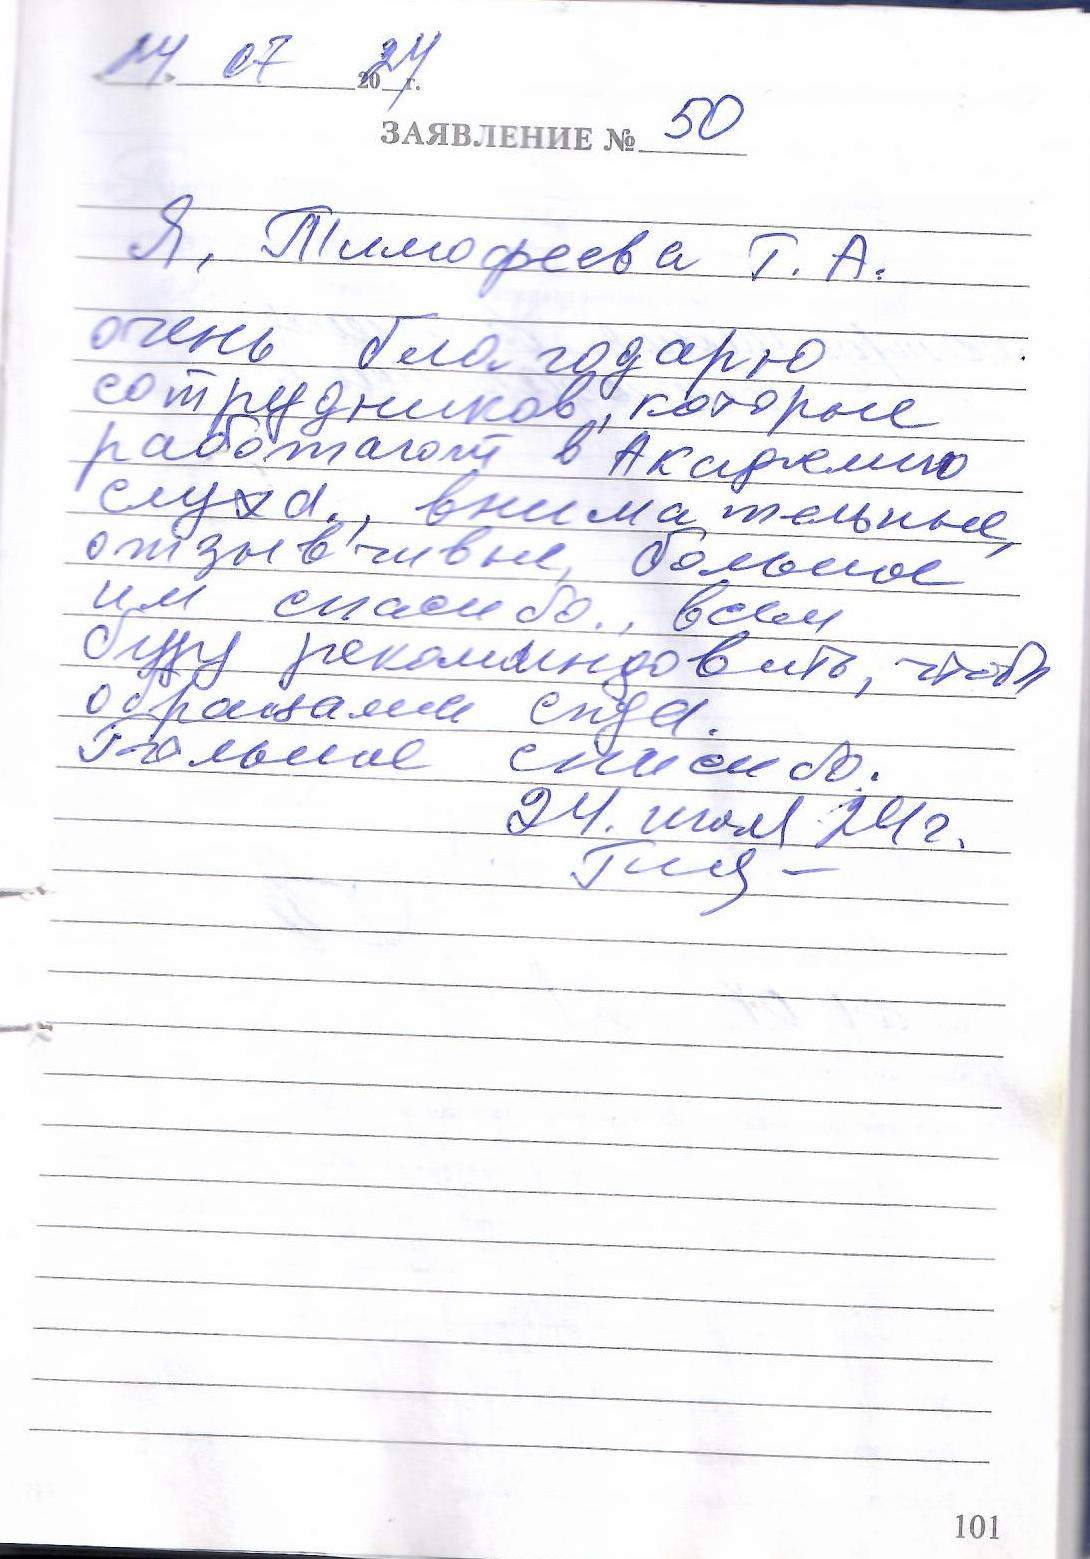 « 24 » 07 2024 г.
ЗАЯВЛЕНИЕ № 50
Я, Тимофеева Т. А.
очень благодарю
сотрудников, которые
работают в Академию
слуха., внимательные,
отзывчивые, большое
им спасибо., всем
буду рекоминдовить, чтобы
обращами сюда.
Большое спасибо.
24. июля 24 г.
101